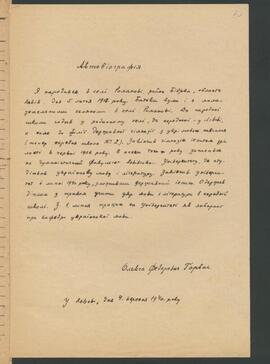 Автобіографія
Я народився в селі Романові, район Бібрка, область
Львів, дня 5 1918 року. Батьки були і є мало-
земельними селянами в селі Романові. До народної
школи ходив у родинному селі, до народної - у Львові,
а саме до філії Державної гімназії з укр. мовою навчання
(тепер середня школа № 2). Закінчив гімназію іспитом зрі-
лості в червні 1936 року. В осени того ж року записався
на гуманістичний факультет львівського Університету, де сту-
діював українську мову і літературу. Закінчив університет
в 1940 року, зложивши державний іспит. Одержав
диплом з правом учити укр. мови і літератури в середній
школі. З 1 працюю на Університеті як лаборант
при катедрі української мови.
Олекса Горбач
У Львові, дня 4. березня 1941 року